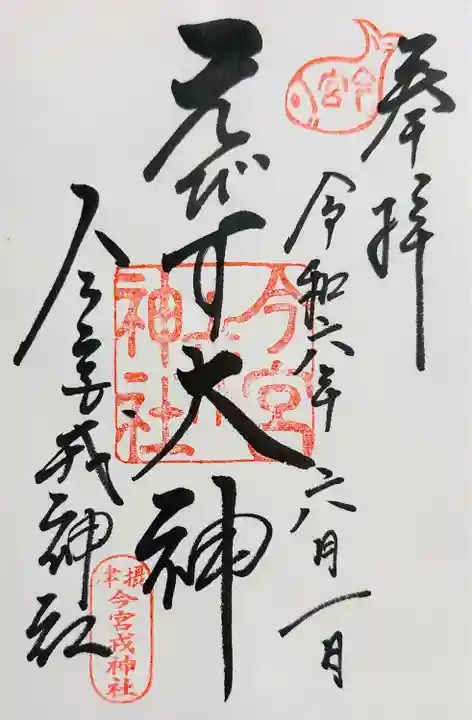 奉拝
今宮
令和六年六月一日
ゑびす大神
今宮戎神社
今宮戎神社
摂津
今宮戎神社